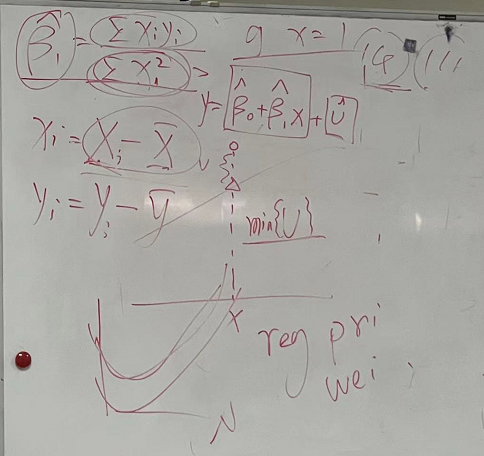 β̂₁ = Σxᵢyᵢ / Σxᵢ²
g x = 1 (14)
y = β̂₀ + β̂₁x + û
xᵢ = Xᵢ − X̄
yᵢ = Yᵢ − Ȳ
min{U}
x
reg pri
wei
N